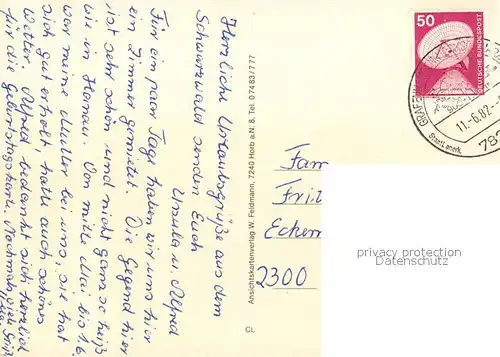 Herzliche Urlaubsgrüße aus dem
Schwarzwald senden Euch
Ursula u. Alfred
Für ein paar Tage haben wir uns hier
ein Zimmer gemietet. Die Gegend hier
ist sehr schön und nicht ganz so heiß
wie in Hanau. Von mitte Mai bis 1.6.
war meine Mutter bei uns, sie hat
sich gut erholt, hatte auch schönes
Wetter. Alfred bedankt sich herzlich
für die Geburtstagskarte. Nochmals viele Grüße
Ansichtskartenverlag W. Feldmann, 7240 Horb a.N. 8. Tel. 07483/777
CL
50
DEUTSCHE BUNDESPOST
11.-6.82
Staatl. anerk.
78
Fam
Frit
Ecker
2300
privacy protection
Datenschutz